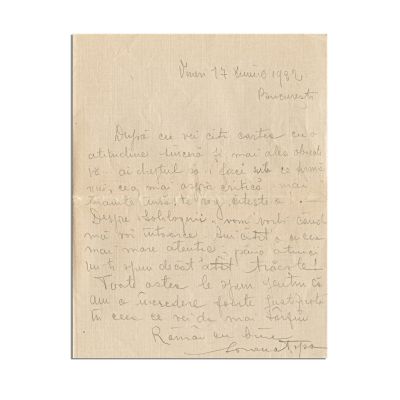 Vineri 17 Iunie 1932
București
După ce vei citi cartea cu o
atitudine sinceră și mai ales obiecti
vă ai dreptul să-i faci sub ce formă
vrei, cea mai aspră critică mai
înainte însă te rog citește-o
Despre vom vorbi când
mă voi întoarce cu cea
mai mare atenție până atunci
nu-ți spun decât atât trăește!
Toate astea le spun pentru că
am o încredere foarte justificată
în ceea ce vei da mai târziu
Rămâi cu bine